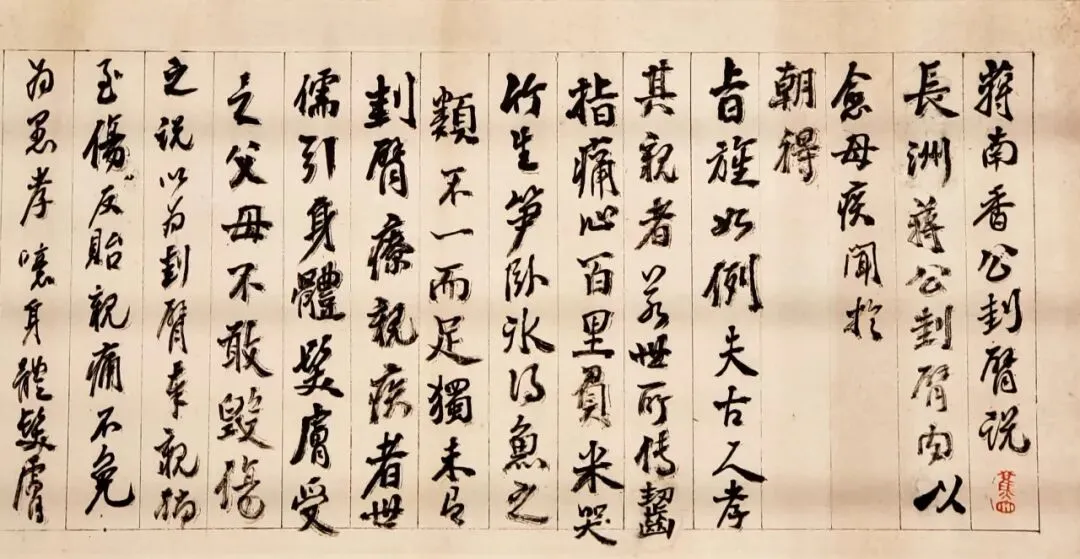 蔣南香公刲臂说
長洲蔣公刲臂肉以
愈母疾聞於
朝得
旨旌如例夫古人孝
其親者若世所传齧
指痛心百里負米哭
竹生笋卧冰得魚之
類不一而足獨未有
刲臂療親疾者世
儒引身體髮膚受
之父母不敢毀傷
之说以为刲臂事親
至傷反貽親痛不免
为愚孝噫身體髮膚